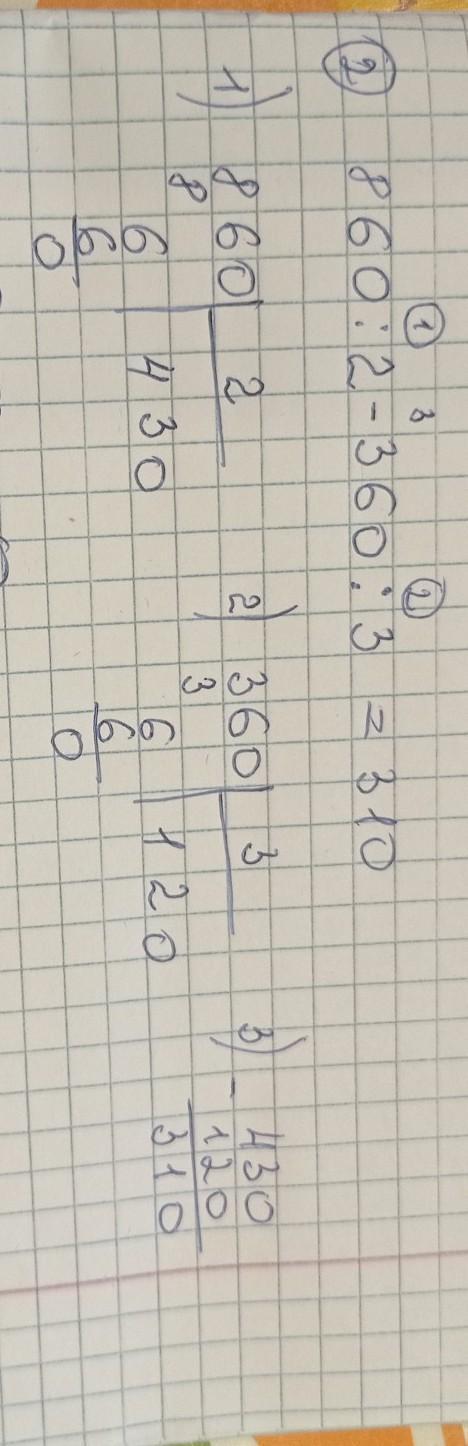 ② 860:2-360:3 = 310
① 3 ②
1) 860 | 2
8 430
6
6
0
2) 360 | 3
3 120
6
6
0
3) - 430
120
310